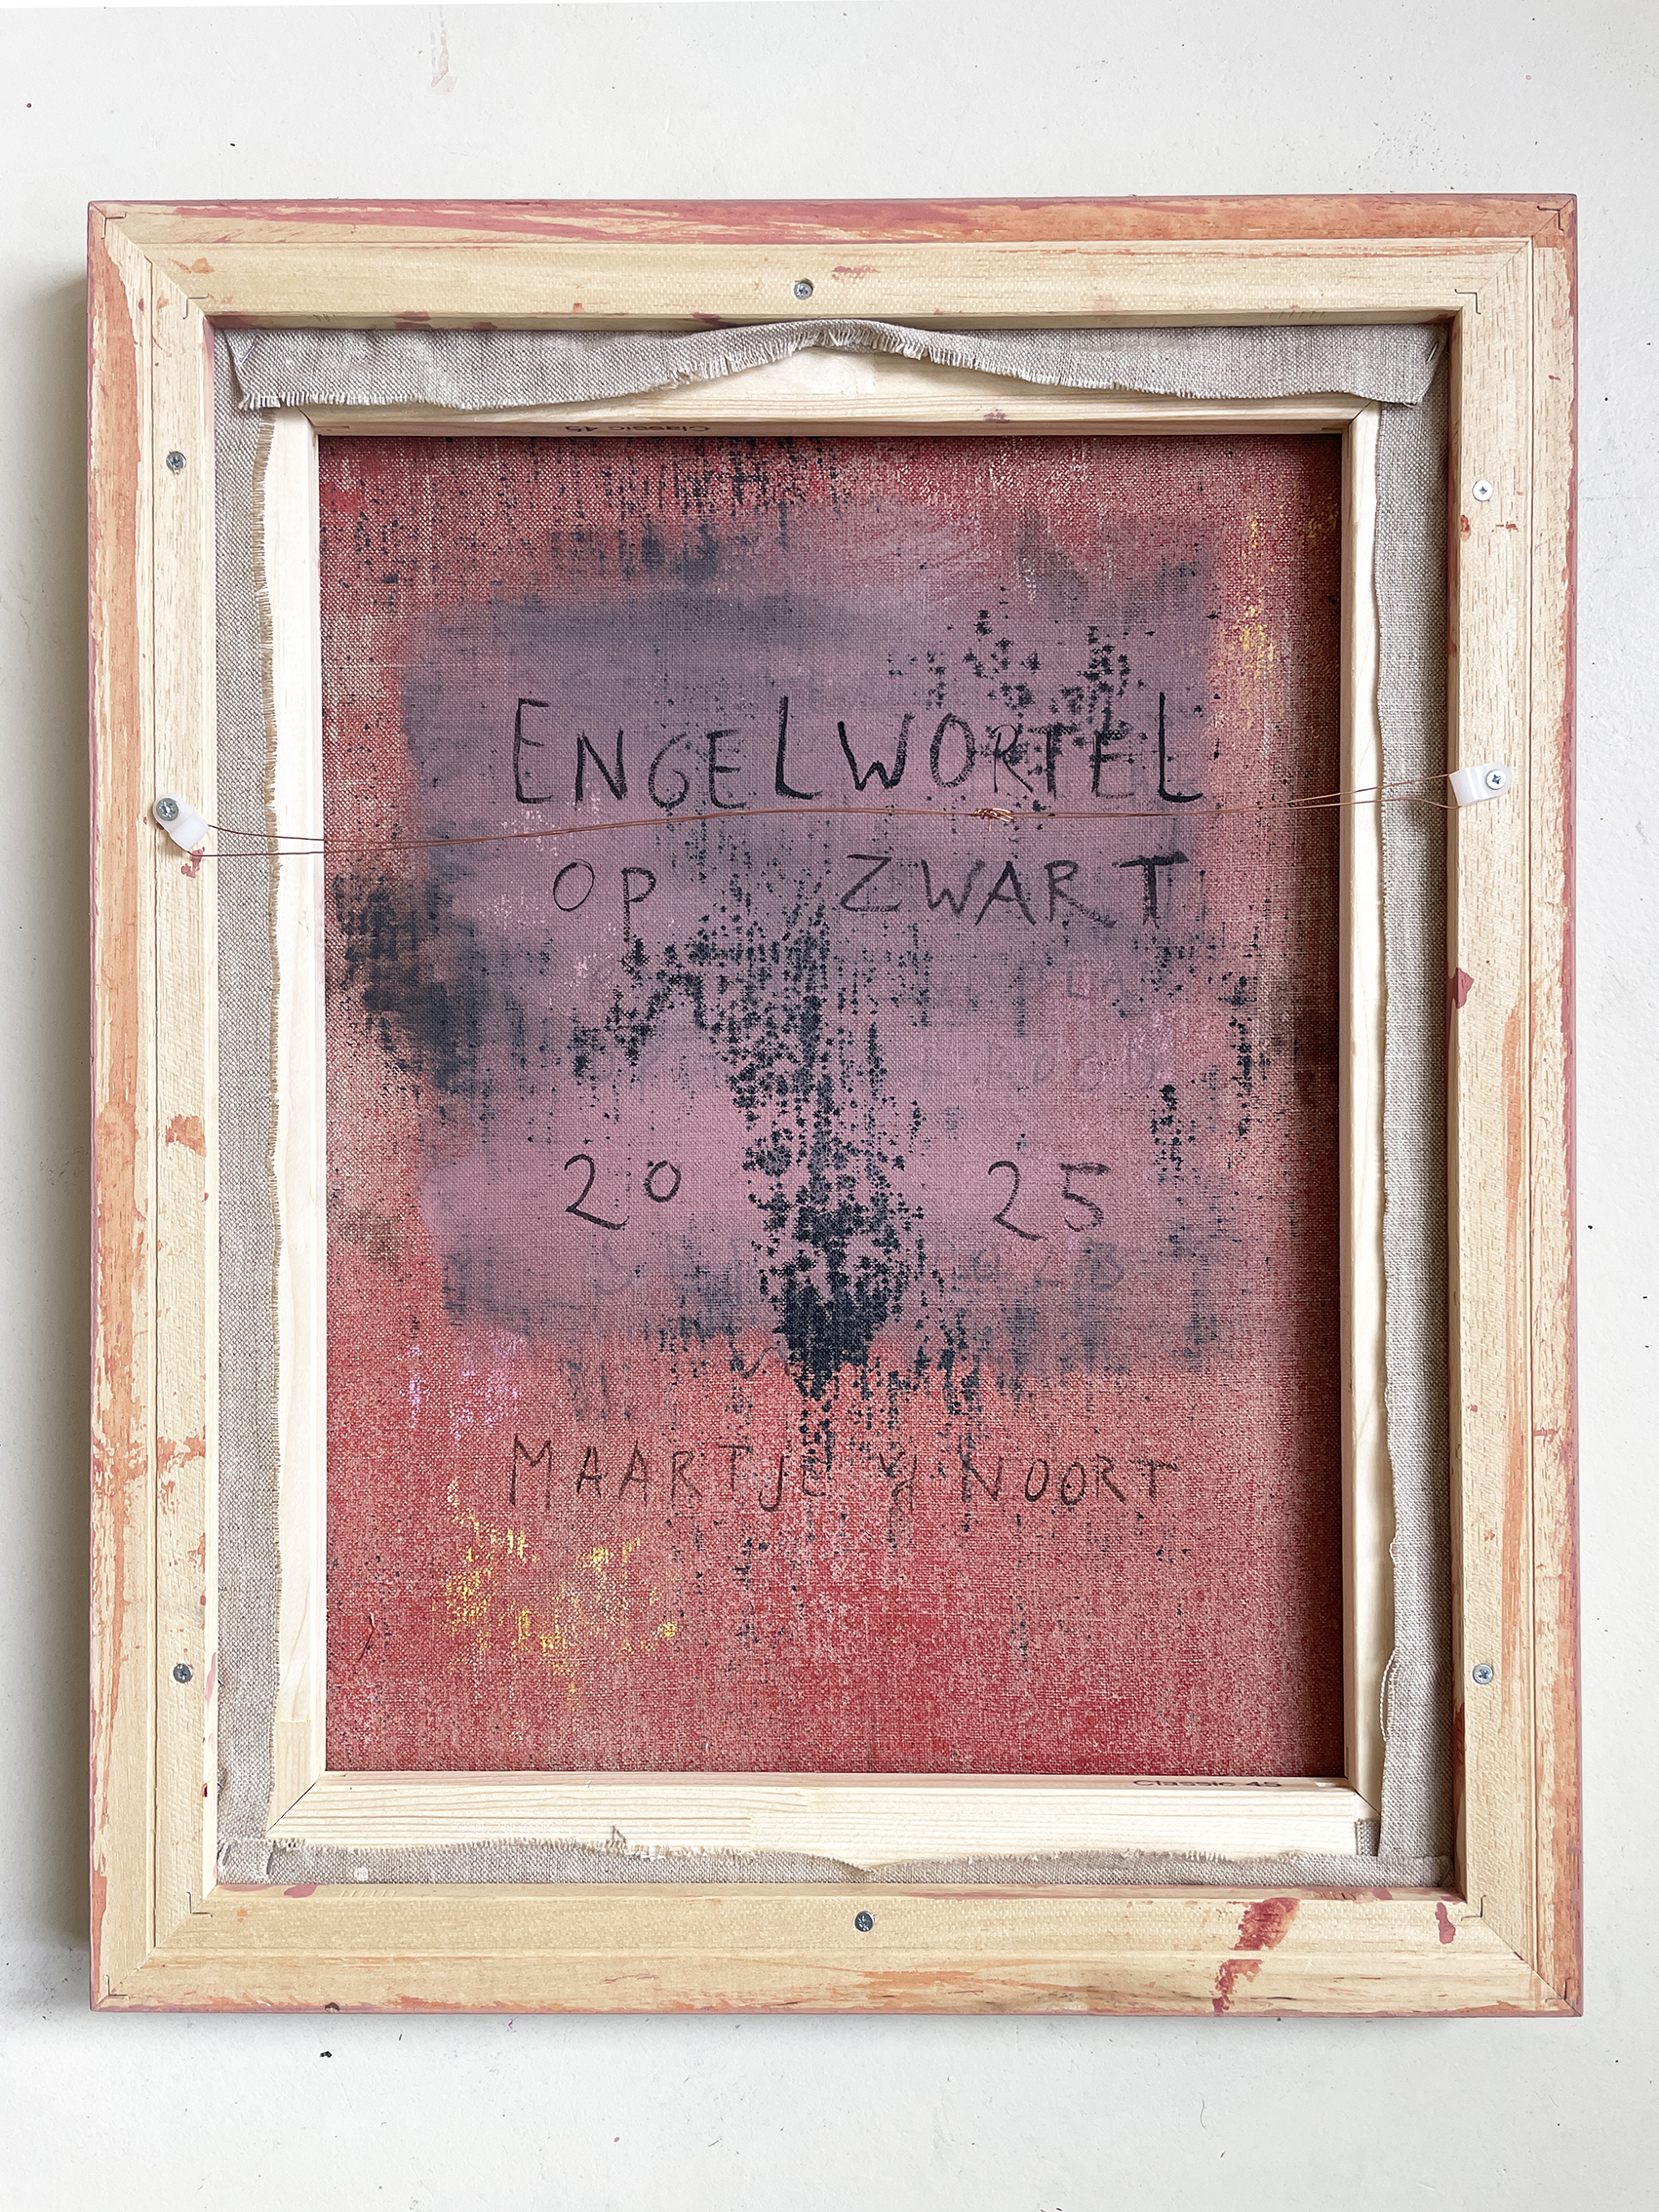 Classic 45
ENGELWORTEL
OP ZWART
20 25
MAARTJE VD NOORT
Classic 45